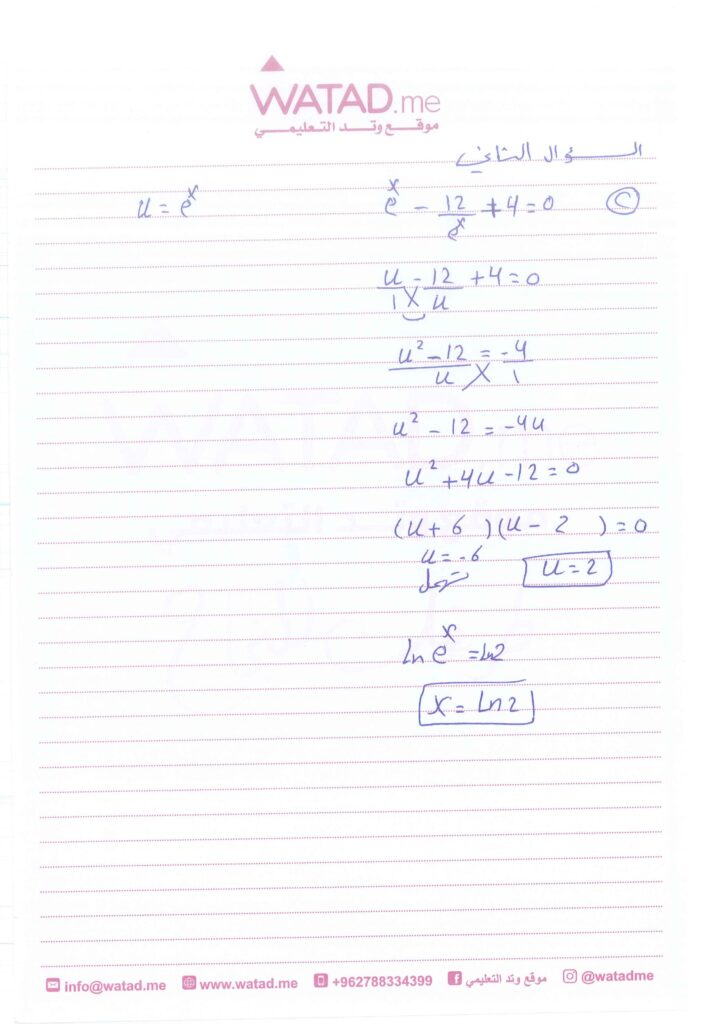 WATAD.me
موقع وتد التعليمي
السؤال الثاني
u = e^x
e^x - 12/e^x + 4 = 0 Ⓒ
u/1 - 12/u + 4 = 0
(u² - 12)/u = -4/1
u² - 12 = -4u
u² + 4u - 12 = 0
(u + 6 )(u - 2 ) = 0
u = -6 u = 2
تهمل
ln e^x = ln2
x = ln2
info@watad.me www.watad.me +962788334399 موقع وتد التعليمي @watadme